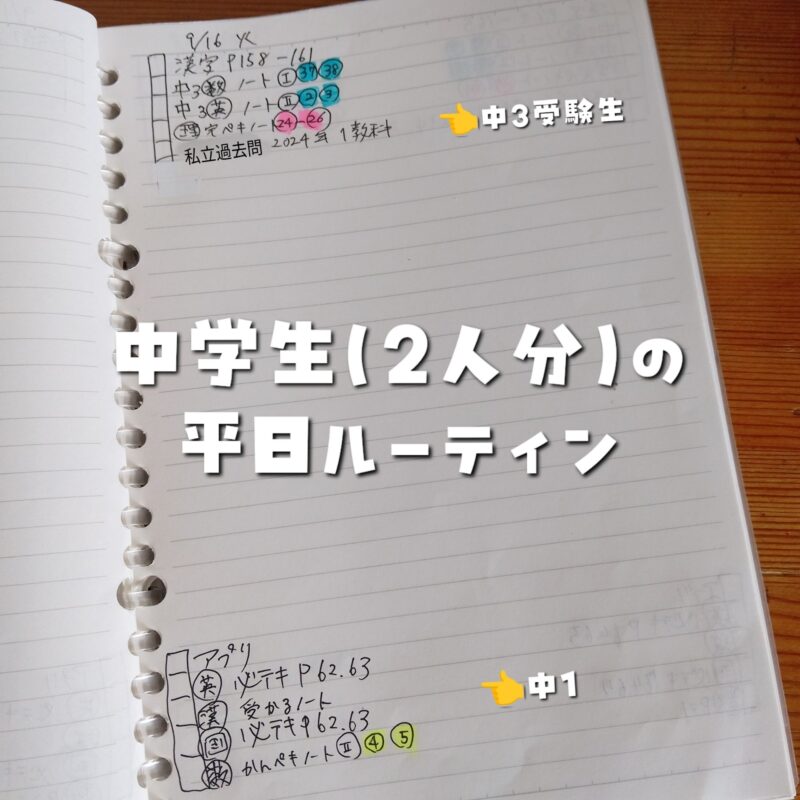 9/16 火
漢字 P158-161
中3 数 ノート Ⅰ 37 38
中3 英 ノート Ⅱ 2 3
理 完ペキノート 24-26
私立過去問 2024年 1教科
👉中3受験生
中学生(2人分)の
平日ルーティン
アプリ
英 必テキ P62.63
漢 受かるノート
必テキ P62.63
数 かんペキノート Ⅱ 4 5
👉中1